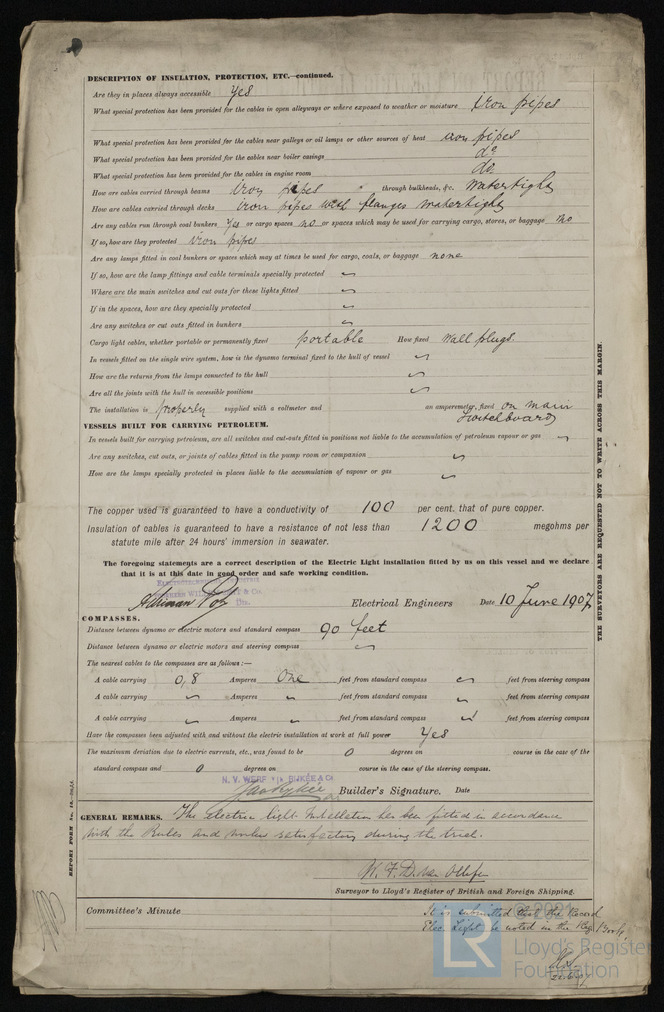 DESCRIPTION OF INSULATION, PROTECTION, ETC.—continued.
Are they in places always accessible Yes
What special protection has been provided for the cables in open alleyways or where exposed to weather or moisture iron pipes
What special protection has been provided for the cables near galleys or oil lamps or other sources of heat iron pipes
What special protection has been provided for the cables near boiler casings do
What special protection has been provided for the cables in engine room do
How are cables carried through beams iron pipes " through bulkheads, &c. Watertight
How are cables carried through decks iron pipes with flanges watertight
Are any cables run through coal bunkers Yes or cargo spaces no or spaces which may be used for carrying cargo, stores, or baggage no
If so, how are they protected iron pipes
Are any lamps fitted in coal bunkers or spaces which may at times be used for cargo, coals, or baggage none
If so, how are the lamp fittings and cable terminals specially protected ~
Where are the main switches and cut outs for these lights fitted ~
If in the spaces, how are they specially protected ~
Are any switches or cut outs fitted in bunkers ~
Cargo light cables, whether portable or permanently fixed portable How fixed Wall plugs.
In vessels fitted on the single wire system, how is the dynamo terminal fixed to the hull of vessel ~
How are the returns from the lamps connected to the hull ~
Are all the joints with the hull in accessible positions ~
The installation is properly supplied with a voltmeter and an amperemeter, fixed on main
switchboard
VESSELS BUILT FOR CARRYING PETROLEUM.
In vessels built for carrying petroleum, are all switches and cut-outs fitted in positions not liable to the accumulation of petroleum vapour or gas ~
Are any switches, cut outs, or joints of cables fitted in the pump room or companion ~
How are the lamps specially protected in places liable to the accumulation of vapour or gas ~
The copper used is guaranteed to have a conductivity of 100 per cent. that of pure copper.
Insulation of cables is guaranteed to have a resistance of not less than 1200 megohms per
statute mile after 24 hours' immersion in seawater.
The foregoing statements are a correct description of the Electric Light installation fitted by us on this vessel and we declare
that it is at this date in good order and safe working condition.
Electrical Engineers Date 10 June 1907
COMPASSES.
Distance between dynamo or electric motors and standard compass 90 feet
Distance between dynamo or electric motors and steering compass ~
The nearest cables to the compasses are as follows:—
A cable carrying 0,8 Amperes One feet from standard compass ~ feet from steering compass
A cable carrying ~ Amperes ~ feet from standard compass ~ feet from steering compass
A cable carrying ~ Amperes ~ feet from standard compass ~ feet from steering compass
Have the compasses been adjusted with and without the electric installation at work at full power Yes
The maximum deviation due to electric currents, etc., was found to be 0 degrees on course in the case of the
standard compass and 0 degrees on course in the case of the steering compass.
N. V. WERF v/h RIJKEE & Co
Builder's Signature. Date
GENERAL REMARKS. The electric light installation has been fitted in accordance
with the Rules and works satisfactory during the trial.
Surveyor to Lloyd's Register of British and Foreign Shipping.
Committee's Minute
It is submitted that the Record
Elec. Light be noted in the Reg. Book.
THE SURVEYORS ARE REQUESTED NOT TO WRITE ACROSS THIS MARGIN.
© 2021
LR
Lloyd's Register
Foundation